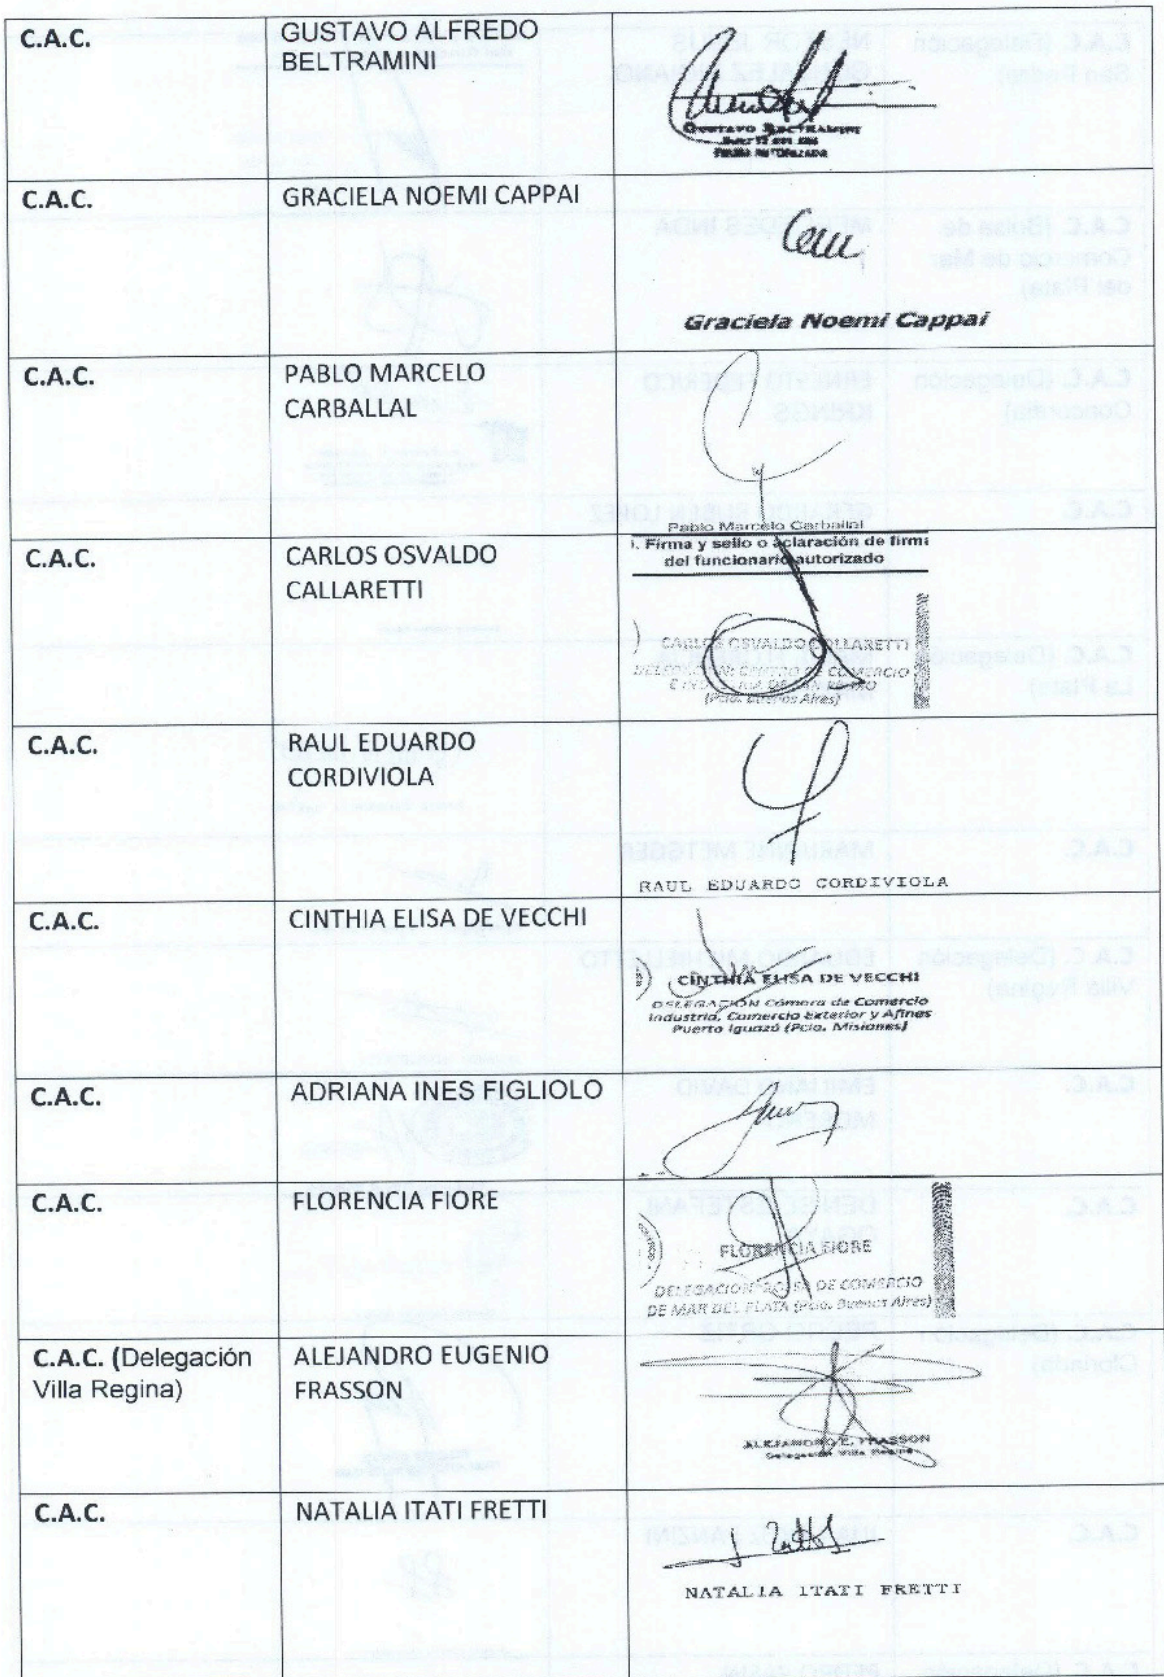 C.A.C.
GUSTAVO ALFREDO
BELTRAMINI
GUSTAVO BELTRAMINI
FIRMA AUTORIZADA
C.A.C.
GRACIELA NOEMI CAPPAI
Graciela Noemi Cappai
C.A.C.
PABLO MARCELO
CARBALLAL
Pablo Marcelo Carballal
C.A.C.
CARLOS OSVALDO
CALLARETTI
i. Firma y sello o aclaración de firma
del funcionario autorizado
CARLOS OSVALDO COLLARETTI
DELEGACION: CENTRO DE COMERCIO
E INDUSTRIA DE SAN PEDRO
(Pcia. Buenos Aires)
C.A.C.
RAUL EDUARDO
CORDIVIOLA
RAUL EDUARDO CORDIVIOLA
C.A.C.
CINTHIA ELISA DE VECCHI
CINTHIA ELISA DE VECCHI
DELEGACIÓN Cámara de Comercio
Industria, Comercio Exterior y Afines
Puerto Iguazú (Pcia. Misiones)
C.A.C.
ADRIANA INES FIGLIOLO
C.A.C.
FLORENCIA FIORE
FLORENCIA FIORE
DELEGACION BOLSA DE COMERCIO
DE MAR DEL PLATA (Pcia. Buenos Aires)
C.A.C. (Delegación
Villa Regina)
ALEJANDRO EUGENIO
FRASSON
ALEJANDRO E. FRASSON
Delegación Villa Regina
C.A.C.
NATALIA ITATI FRETTI
NATALIA ITATI FRETTI